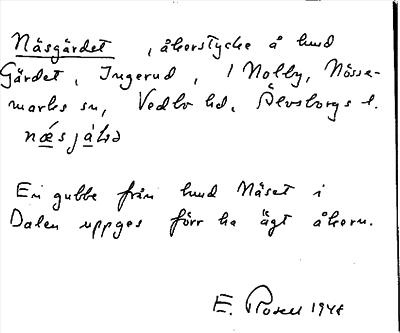 Näsgärdet, åkerstycke å hmd
Gärdet, Ingerud, i Nolby, Nösse-
marks sn, Vedbo hd. Älvsborgs l.
næsjáḷə
En gubbe från hmd Näset i
Dalen uppges förr ha ägt åkern.
E. Rosell 1948